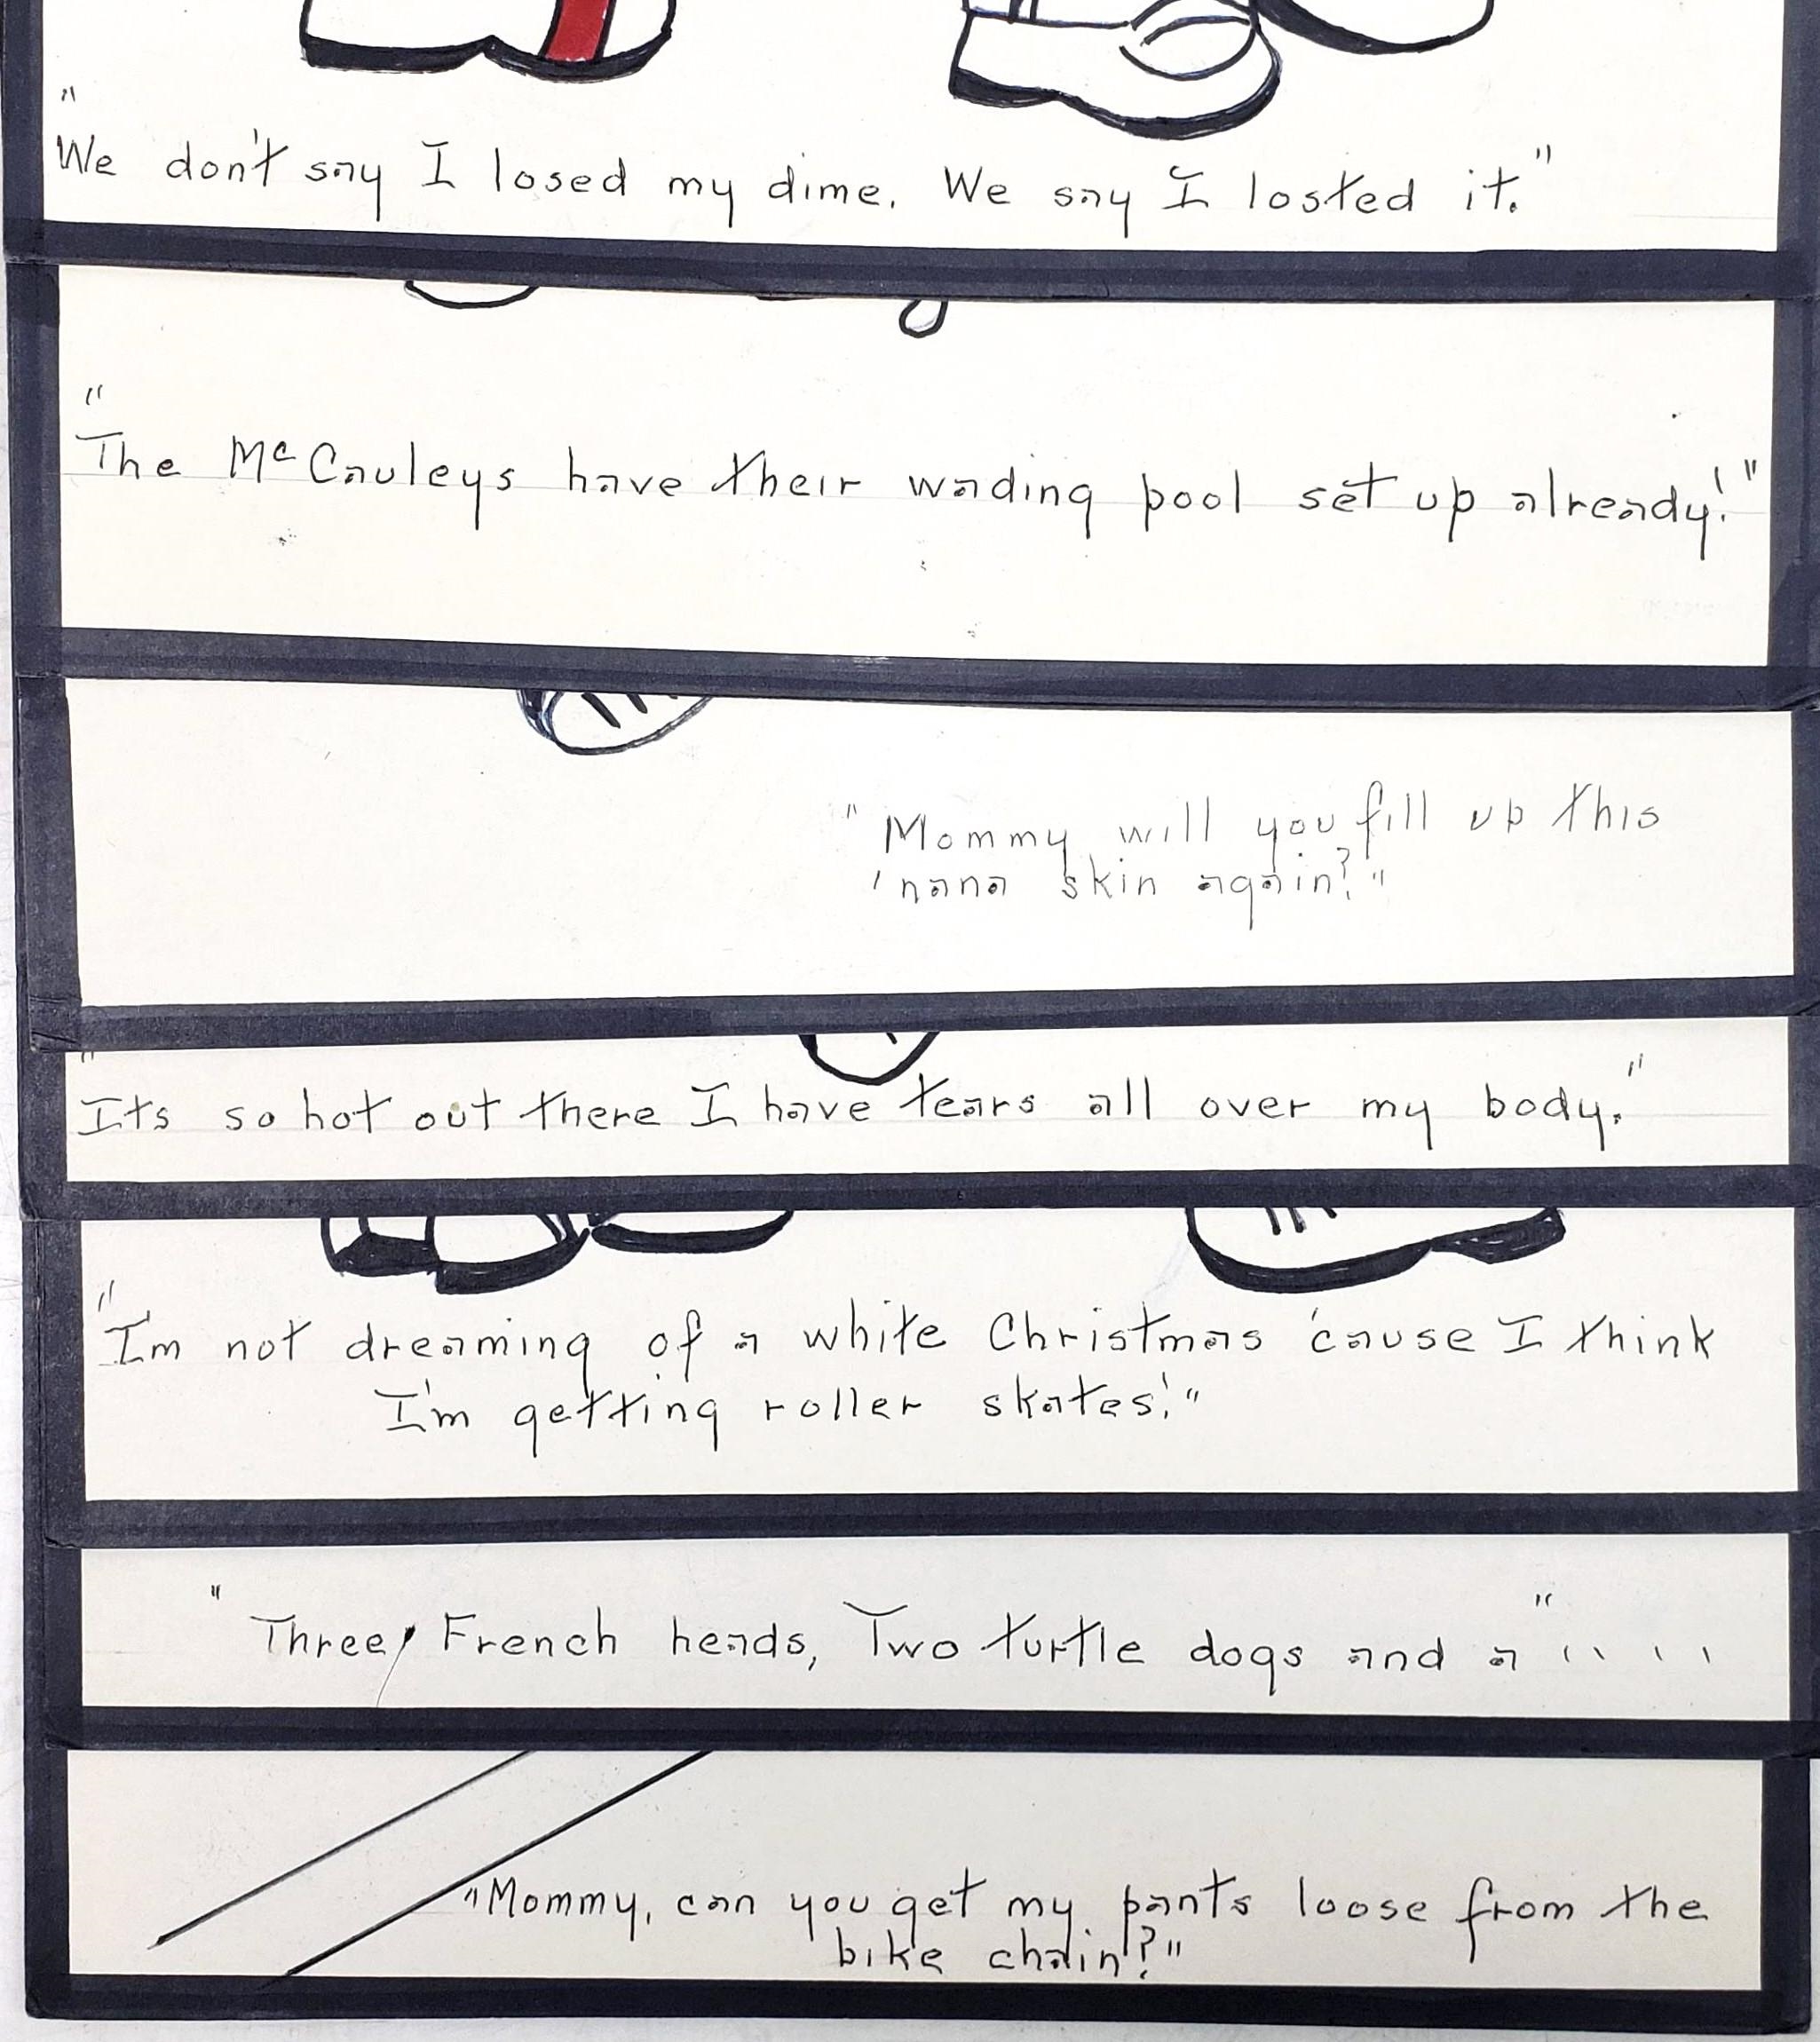 "We don't say I losed my dime. We say I losted it."
"The McCauleys have their wading pool set up already!"
"Mommy will you fill up this
'nana skin again?"
"Its so hot out there I have tears all over my body."
"I'm not dreaming of a white Christmas 'cause I think
I'm getting roller skates!"
"Three French heads, Two turtle dogs and a"....
"Mommy, can you get my pants loose from the
bike chain?"